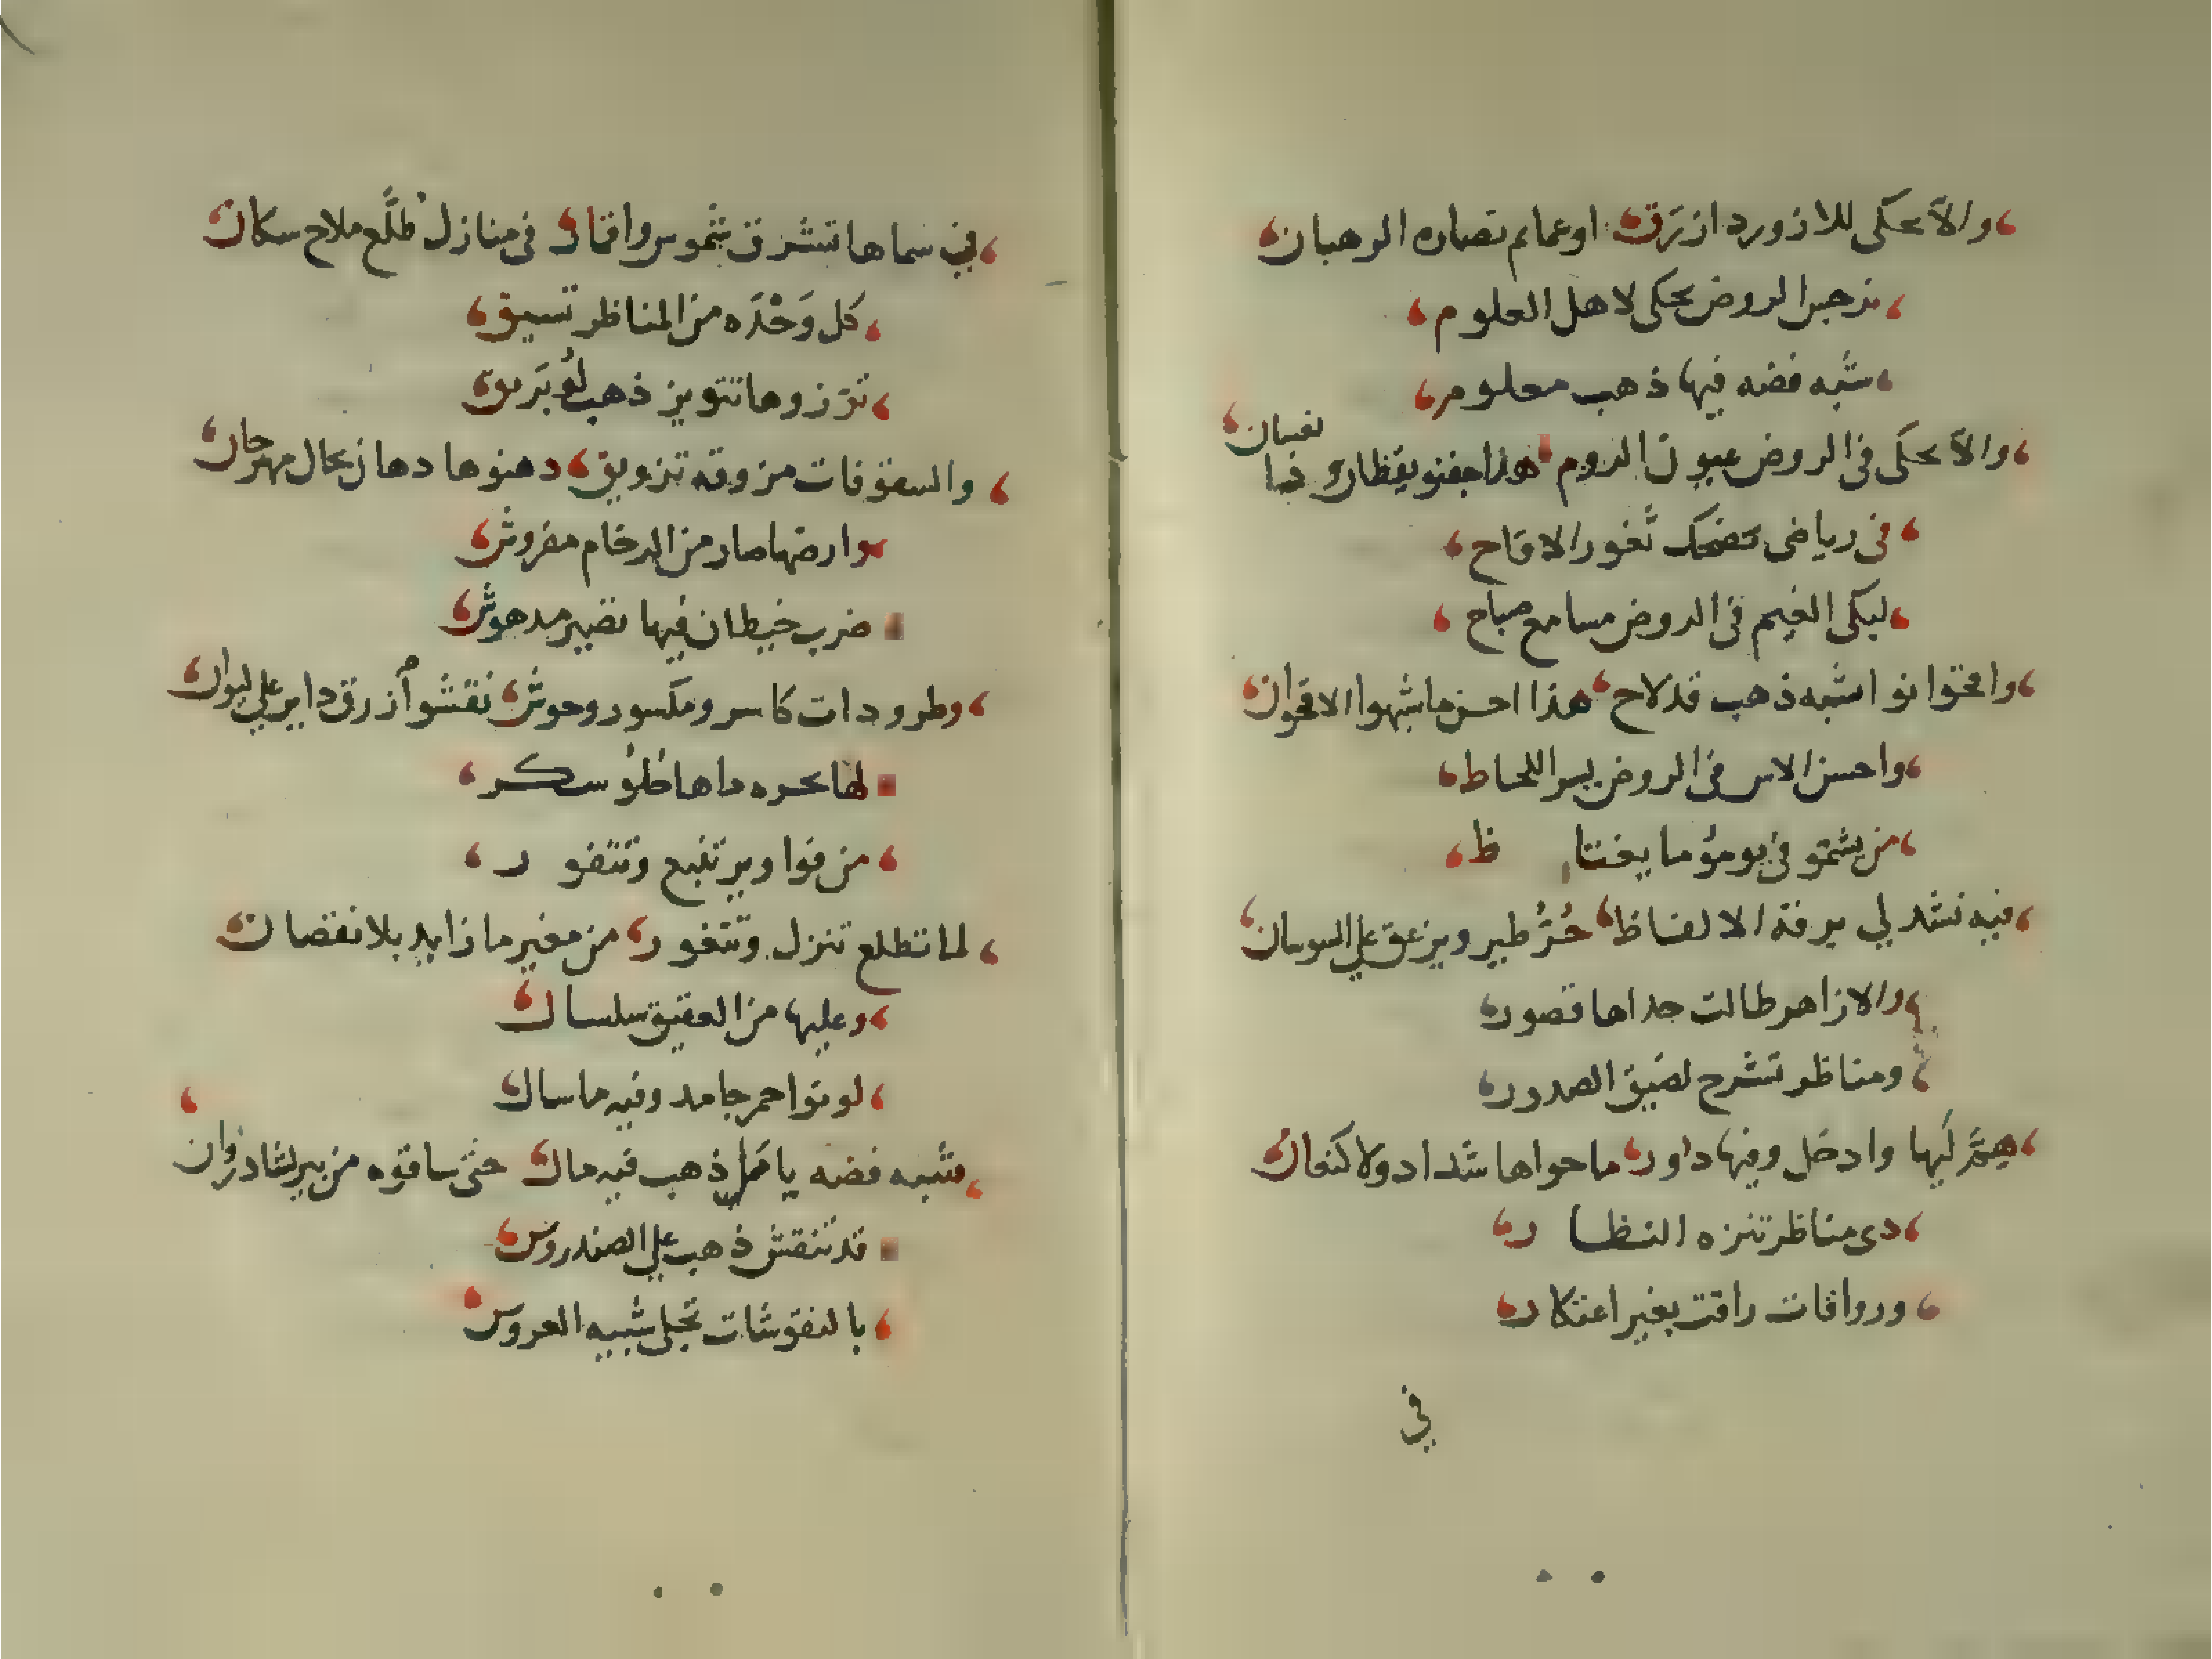 والا يحكى للازورد ازرق او عمايم نصاره الرهبان
نرجس الروض يحكى لاهل العلوم
شبه فضه فيها ذهب معلوم
والا يحكى فى الروض عيون الروم هذا جفنو يقظان وذا نعسان
فى رياضى تضحك ثغور الاقاح
ليكى الغيم فى الروض مسا مع صباح
واقحوانو اشبه ذهب قد لاح هذا احسن ما شبهوا الاقحوان
واحسن الاس فى الروض يسر اللحاظ
من يشمو فى يومو ما يغتاظ
فيه نشد لي برقة الالفاظ حُرّ طير ويزعق على السوسان
والازاهر طالت جداها قصور
ومناظر تشرح لضيق الصدور
هيم ليها وادخل وفيها دور ما حواها شداد ولا كنعان
دى مناظر تنزه النظار
ورواقات راقت بغير اعتكار
في
في سماها تشرق شموس واقمار فى منازل طلّع ملاح سكان
كل وَحْدَه من المناظر تسبق
تزّزوها تتويز ذهب لُو بَريق
والسقوفات مزوقه تزويق دهنوها دهان بحال مهرجان
وارضها صار من الرخام مفروش
ضرب خيطان فيها تصير مدهوش
وطرودات كاسر ومكسور وحوش نقشو أزرق داير على ليوان
لها بحره ماها حُلُو سكر
من فوا وير تنبع وتتفور
لما تطلع تنزل وتتغور من مغير ما زايد بلا نقصان
وعليها من العقيق سلسال
لونوا احمر جامد وفيه ما سال
شبه فضه يا مَل ذهب فيه مال حتى ساقوه من بير لشادروان
قد تنقش ذهب على الصندروس
بالنقوشات تجلى شبيه العروس